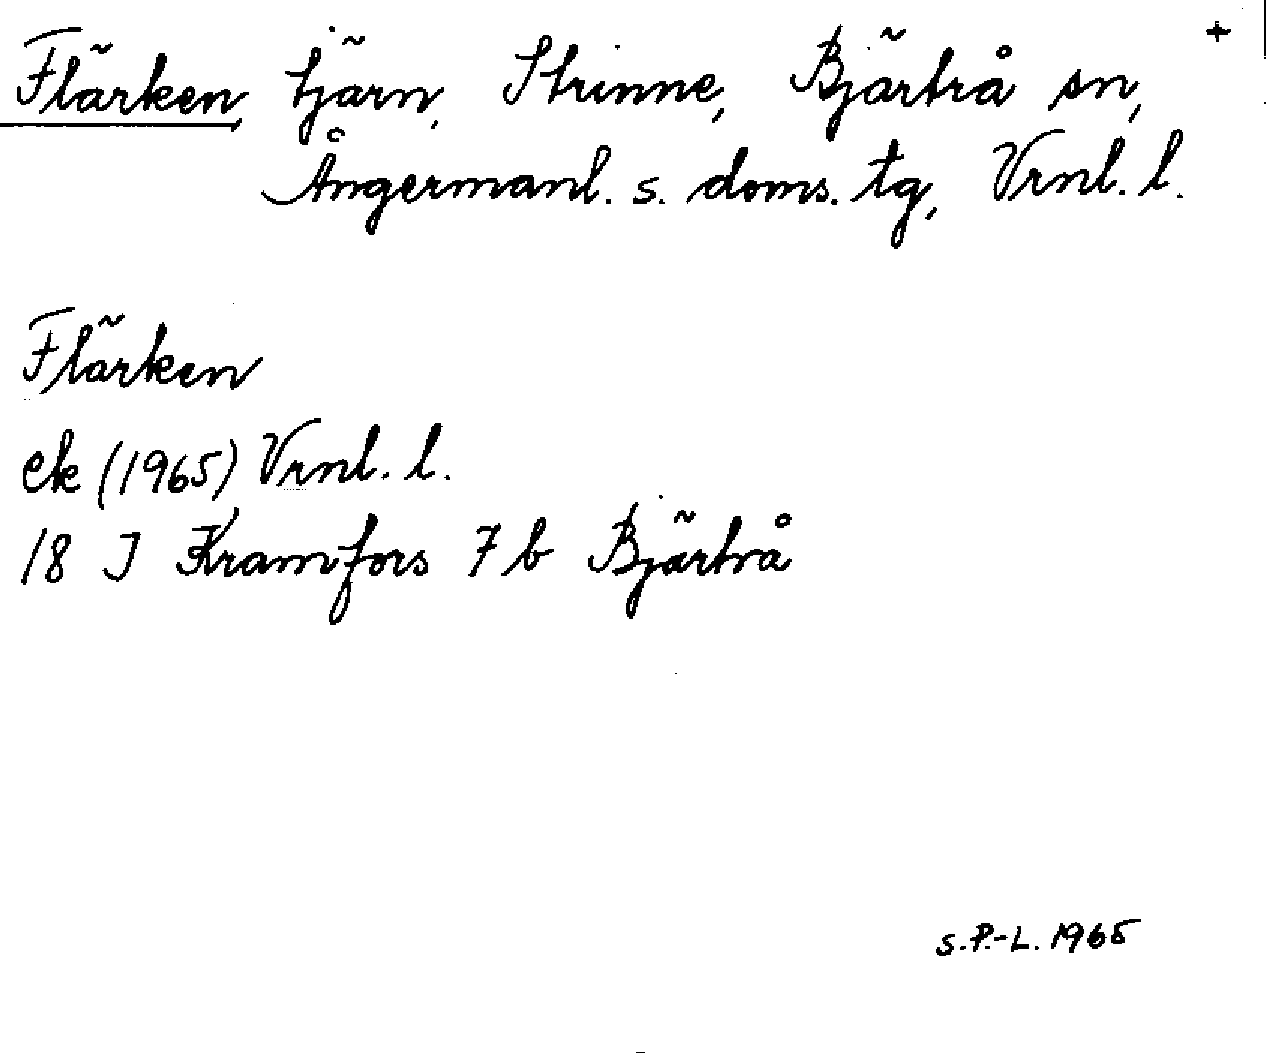 Flärken, tjärn, Strinne, Bjärtrå sn, +
Ångermanl. s. doms. tg, Vrnl. l.
Flärken
ek (1965) Vrnl. l.
18 J Kramfors 7 b Bjärtrå
s.P.-L. 1965